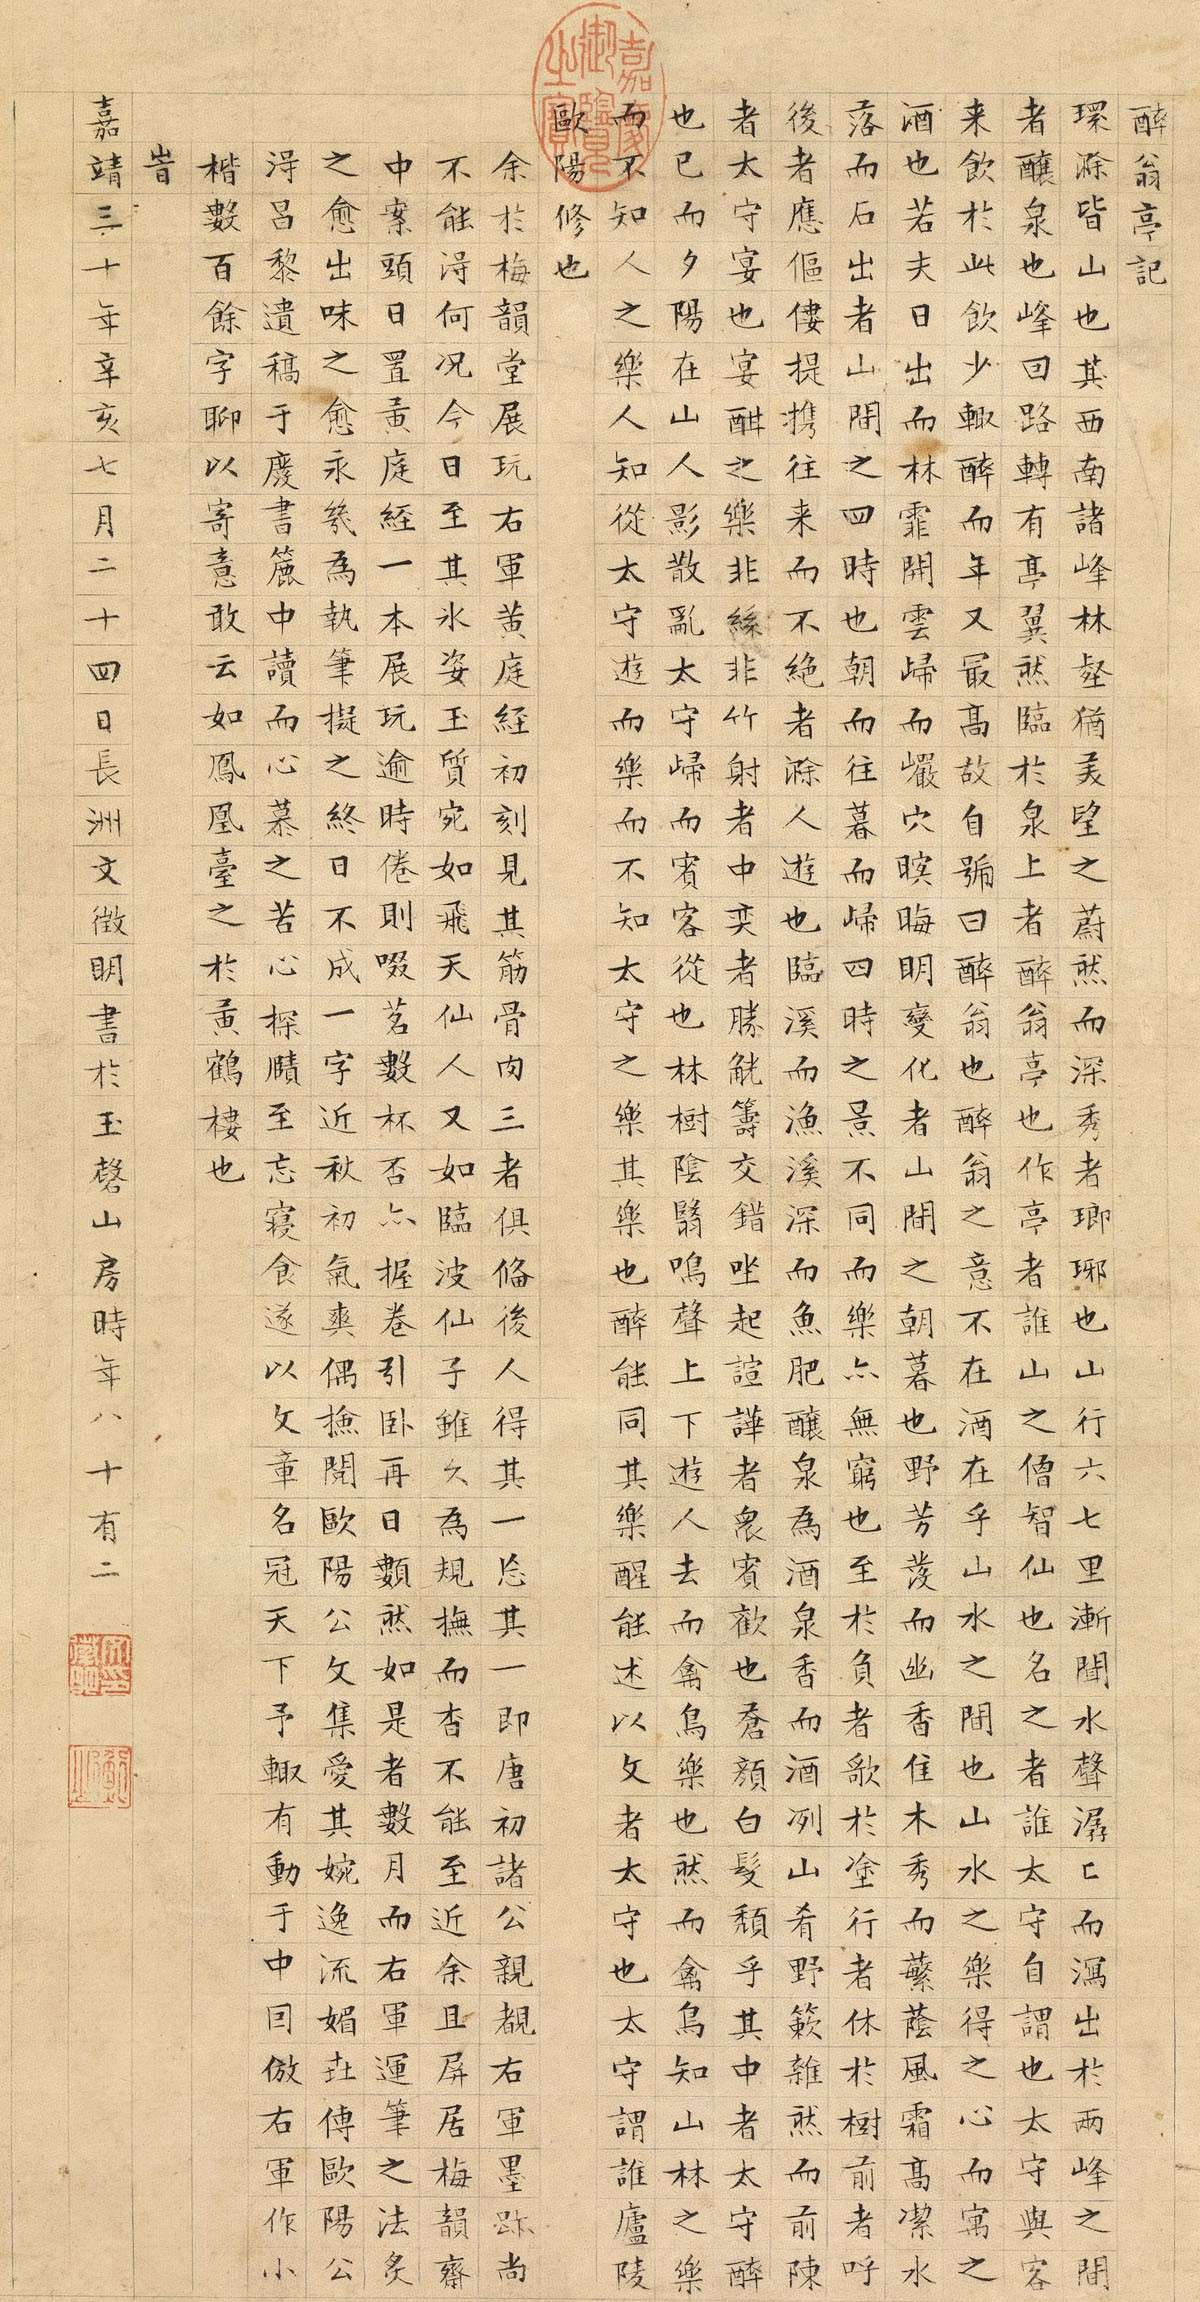 醉翁亭記
環滁皆山也其西南諸峰林壑猶美望之蔚然而深秀者瑯琊也山行六七里漸聞水聲潺匕而瀉出於兩峰之間
者釀泉也峰回路轉有亭翼然臨於泉上者醉翁亭也作亭者誰山之僧智仙也名之者誰太守自謂也太守與客
来飲於此飲少輙醉而年又最高故自號曰醉翁也醉翁之意不在酒在乎山水之間也山水之樂得之心而寓之
酒也若夫日出而林霏開雲歸而巖穴暝晦明變化者山間之朝暮也野芳發而幽香佳木秀而蘩蔭風霜高潔水
落而石出者山間之四時也朝而往暮而歸四時之景不同而樂亦無窮也至於負者歌於塗行者休於樹前者呼
後者應傴僂提攜往来而不絕者滁人遊也臨溪而漁溪深而魚肥釀泉為酒泉香而酒冽山肴野蔌雜然而前陳
者太守宴也宴酣之樂非絲非竹射者中奕者勝觥籌交錯坐起諠譁者眾賓歡也蒼顏白髮頹乎其中者太守醉
也已而夕陽在山人影散亂太守歸而賓客從也林樹陰翳鳴聲上下遊人去而禽鳥樂也然而禽鳥知山林之樂
而不知人之樂人知從太守遊而樂而不知太守之樂其樂也醉能同其樂醒能述以文者太守也太守謂誰廬陵
歐陽修也
余於梅韻堂展玩右軍黃庭經初刻見其筋骨肉三者俱備後人得其一忘其一即唐初諸公親覩右軍墨跡尚
不能得何況今日至其氷姿玉質宛如飛天仙人又如臨波仙子雖久為規撫而杳不能至近余且屏居梅韻齋
中案頭日置黃庭經一本展玩逾時倦則啜茗數杯否亦握卷引卧再日數然如是者數月而右軍運筆之法炙
之愈出味之愈永幾為執筆擬之終日不成一字近秋初氣爽偶撿閱歐陽公文集愛其婉逸流媚世傳歐陽公
得昌黎遺稿于廢書簏中讀而心慕之苦心探賾至忘寢食遂以文章名冠天下予輙有動于中囙倣右軍作小
楷數百餘字聊以寄意敢云如鳳凰臺之於黃鶴樓也
旹
嘉靖三十年辛亥七月二十四日長洲文徵明書於玉磬山房時年八十有二
嘉慶御覽之寶